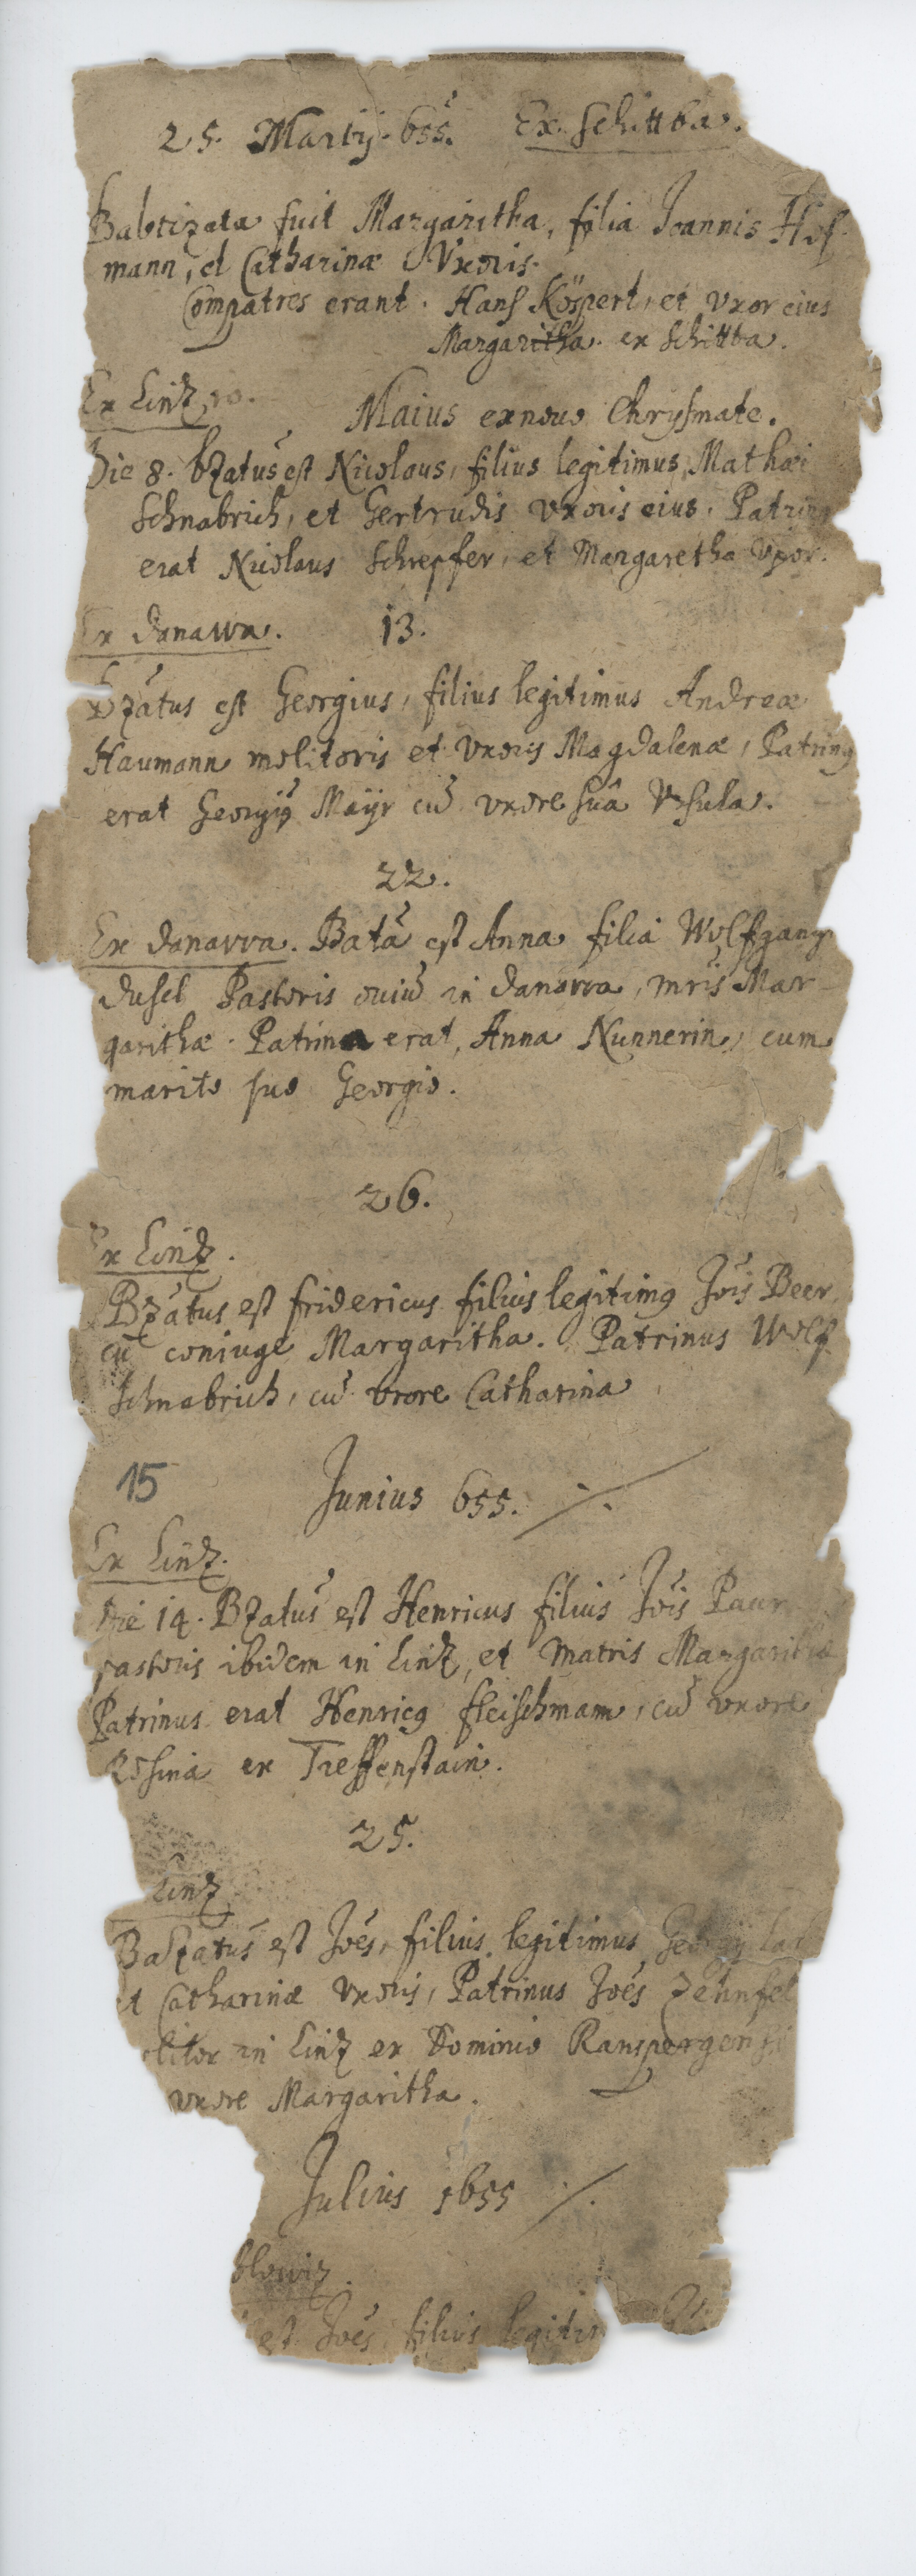 25. Martij. 655. Ex. Schittba.
Babtizata fuit Margaritha, filia Joannis Hof-
mann, et Catharinæ Vxoris.
Compatres erant. Hanß Köspert, et vxor eius
Margaritha. ex Schittba.
Ex Lintz
Maius ex novo Chrysmate.
Die 8. bzatus est Nicolaus, filius legitimus Mathæi
Schnabrich, et Gertrudis vxoris eius. Patrinus
erat Nicolaus Schrepfer, et Margaretha Vxor.
Ex danawa. 13.
Bzatus est Georgius, filius legitimus Andreæ
Haumann molitoris et vxoris Magdalenæ, Patrinus
erat Georgius Maÿr cū vxore suâ Vrsula.
22.
Ex danawa. Bata est Anna filia Wolfgang
dusel Pastoris oviū in danawa, mris Mar-
garithæ. Patrina erat, Anna Nunnerin, cum
marito suo Georgio.
26.
Ex Lintz.
Bzatus est fridericus filius legitimus Jois Beer
cū coniuge Margaritha. Patrinus Wolf
Schnabrich, cū vxore Catharina
15 Junius 655. ./.
Ex Lintz.
Die 14. Bzatus est Henricus filius Jois Paur
pastoris ibidem in Lintz, et Matris Margarithæ
Patrinus erat Henricus fleischmann, cū vxore
Rosina ex Treffenstain.
25.
Lintz
Baptzatus est Joes, filius legitimus Georgij
et Catharinæ vxoris, Patrinus Joes
in Lintz ex Dominio Ranspergensi
vxore Margaritha.
Julius 1655 ./.
est Joes filius